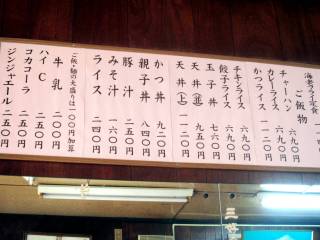 海老フライ定食
ご飯物
チャーハン 六九〇円
カレーライス 六九〇円
かつライス
チキンライス 六九〇円
餃子ライス 六九〇円
玉子丼 六九〇円
天丼(並) 九五〇円
天丼(上) 一一二〇円
かつ丼 九二〇円
親子丼 八四〇円
豚汁 二五〇円
みそ汁 一六〇円
ライス 二四〇円
ご飯・麺の大盛りは一〇〇円加算
牛乳 二〇〇円
ハイC 二〇〇円
コカコーラ 二五〇円
ジンジャエール 二五〇円